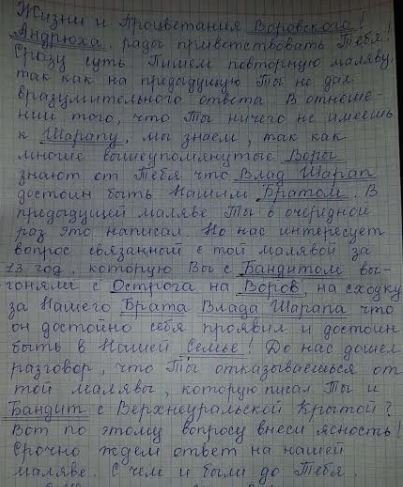 Жизни и Процветания Воровского!
Андрюха, рады приветствовать Тебя!
Сразу суть Пишем повторную маляву,
так как на предыдущую Ты не дал
вразумительного ответа. В отноше-
нии того, что Ты ничего не имеешь
к Шарапу, мы знаем, так как
многие вышеупомянутые Воры
знают от Тебя что Влад Шарап
достоин быть Нашим Братом. В
предыдущей маляве Ты в очередной
раз это написал. Но нас интересует
вопрос связанный с той малявой за
13 год, которую Вы с Бандитом вы-
гоняли с Острога на Воров, на сходку
за Нашего Брата Влада Шарапа что
он достойно себя проявил и достоин
быть в Нашей Семье! До нас дошел
разговор, что Ты отказываешься от
той малявы, которую писал Ты и
Бандит с Верхнеуральской Крытой?
Вот по этому вопросу внеси ясность!
Срочно ждем ответ на нашей
маляве. С чем и были до Тебя.